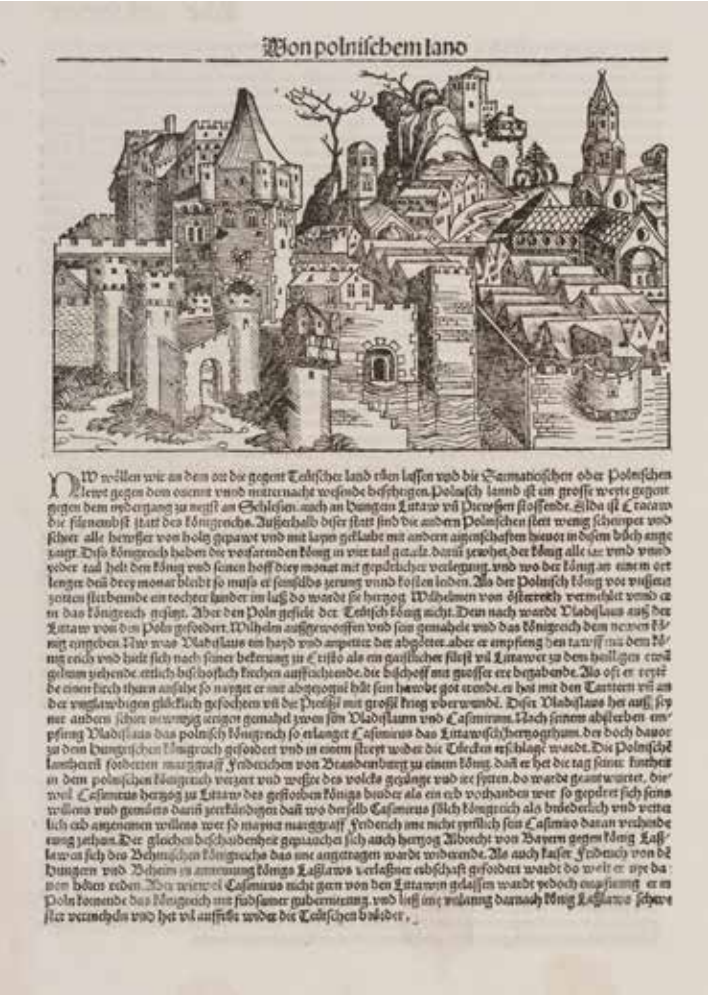 Von polnischem land
NW wöllen wir an dem ort die gegent Teütscher land rüen lassen vnd die Sarmatischen oder Polnischen
lewt gegen dem orient vnnd mitternacht wesende besichtigen. Polnisch lannd ist ein grosse weyte gegent
gegen dem nydergang zu negst an Schlesien. auch an Hungern Littaw vñ Prewßen stossende. Alda ist Cracaw
die fürnembst statt des königreichs. Außerhalb diser statt sind die andern Polnischen stett wenig scheinper vnd
schier alle hewßer von holtz gepawt vnd mit laym gekleibt mit andern aigenschaften hieuor in disem buch ange
zaigt. Diss königreich haben die vorfarenden könig in vier tail getailt. der könig alle iar vnnd
yeder tail helt den könig vnd seinen hoff drey monat mit gepürlicher verlegung. vnd wo der könig an einem ort
lenger denn drey monat bleibt so muss er zerung vnnd kosten leiden. Als der Polnisch könig vor
zeiten sterbende ein tochter hinder im ließ do wardt sie hertzog Wilhelmen von österreich vermehelt vnnd
in das königreich gesetzt. Aber den Poln gefiele der Teütsch könig nicht. Dem nach wardt Vladislaus auß der
Littaw von den Poln gefordert. Wilhelm außgeworffen vnd sein gemahele vnd das königreich dem newen kö-
nig eingeben. Nw was Vladislaus ein hayd vnd anpetter der abgötter. aber er empfieng den tawff mit dem kö-
nigreich vnd hielt sich nach seiner bekerung zu Cristo als ein gaistlicher fürst vil Littawer zu dem heilligen
ziehende. ettlich bischoflich kirchen auffrichtende. die bischoff mit grosser ere begabende. Als oft er reytt
de einen kirch thurn ansahe so nayget er mit abgezogne hüt sein hawbt got erende. er hat mit den Tattern vñ an
der vnglawbigen glücklich gefochten vñ die Prewßen mit großem krieg vberwunden. Diser Vladislaus het auß
ner andern schier newntzig ierigen gemahel zwen sön Vladislaum vnd Casimirum. Nach seinem absterben em-
pfieng Vladislaus das polnisch königreich so erlanget Casimirus das Littawisch hertzogthum. der doch
zu dem Hungrischen königreich gefordert vnd in einem streyt wider die Türcken erschlagen wardt. Die Polnischen
lantherrn forderten marggraff Friderichen von Brandenburg zu einem könig. dann er het die tag seiner kintheit
in dem polnischen königreich verzert vnd weßte des volcks gezünge vnd ire sytten. do wardt geantwurtet. die-
weil Casimirus hertzog zu Littaw des gestorben königs bruder als ein erb vorhanden wer so gepüret sich seins
willens vnd gemüts darin zeerkündigen dann wo derselb Casimirus sölch königreich als brüderlich vnd vetter
lich erb anzenemen willens wer so maynet marggraff Friderich ime nicht zymlich sein Casimiro daran verhinde
rung zethun. Der gleichen bescheidenheit geprauchet sich auch hertzog Albrecht von Bayern gegen könig Laß-
lawen sich des Behmischen königreichs das ime angetragen wardt widerende. Als auch kaiser Friderich von den
Hungern vnd Beheim zu annemung königs Laßlaws verlaßner erbschaft gefordert wardt do wolt er nye da
von hören reden. Aber wiewol Casimirus nicht gern von den Littawen gelassen wardt yedoch empfieng er in
Poln komende das königreich mit fridsamer gubernierung. vnd ließ ime vnlanng darnach könig Laßlaws schwe
ster vermeheln vnd het vil auffrür wider die Teütschen brüder.